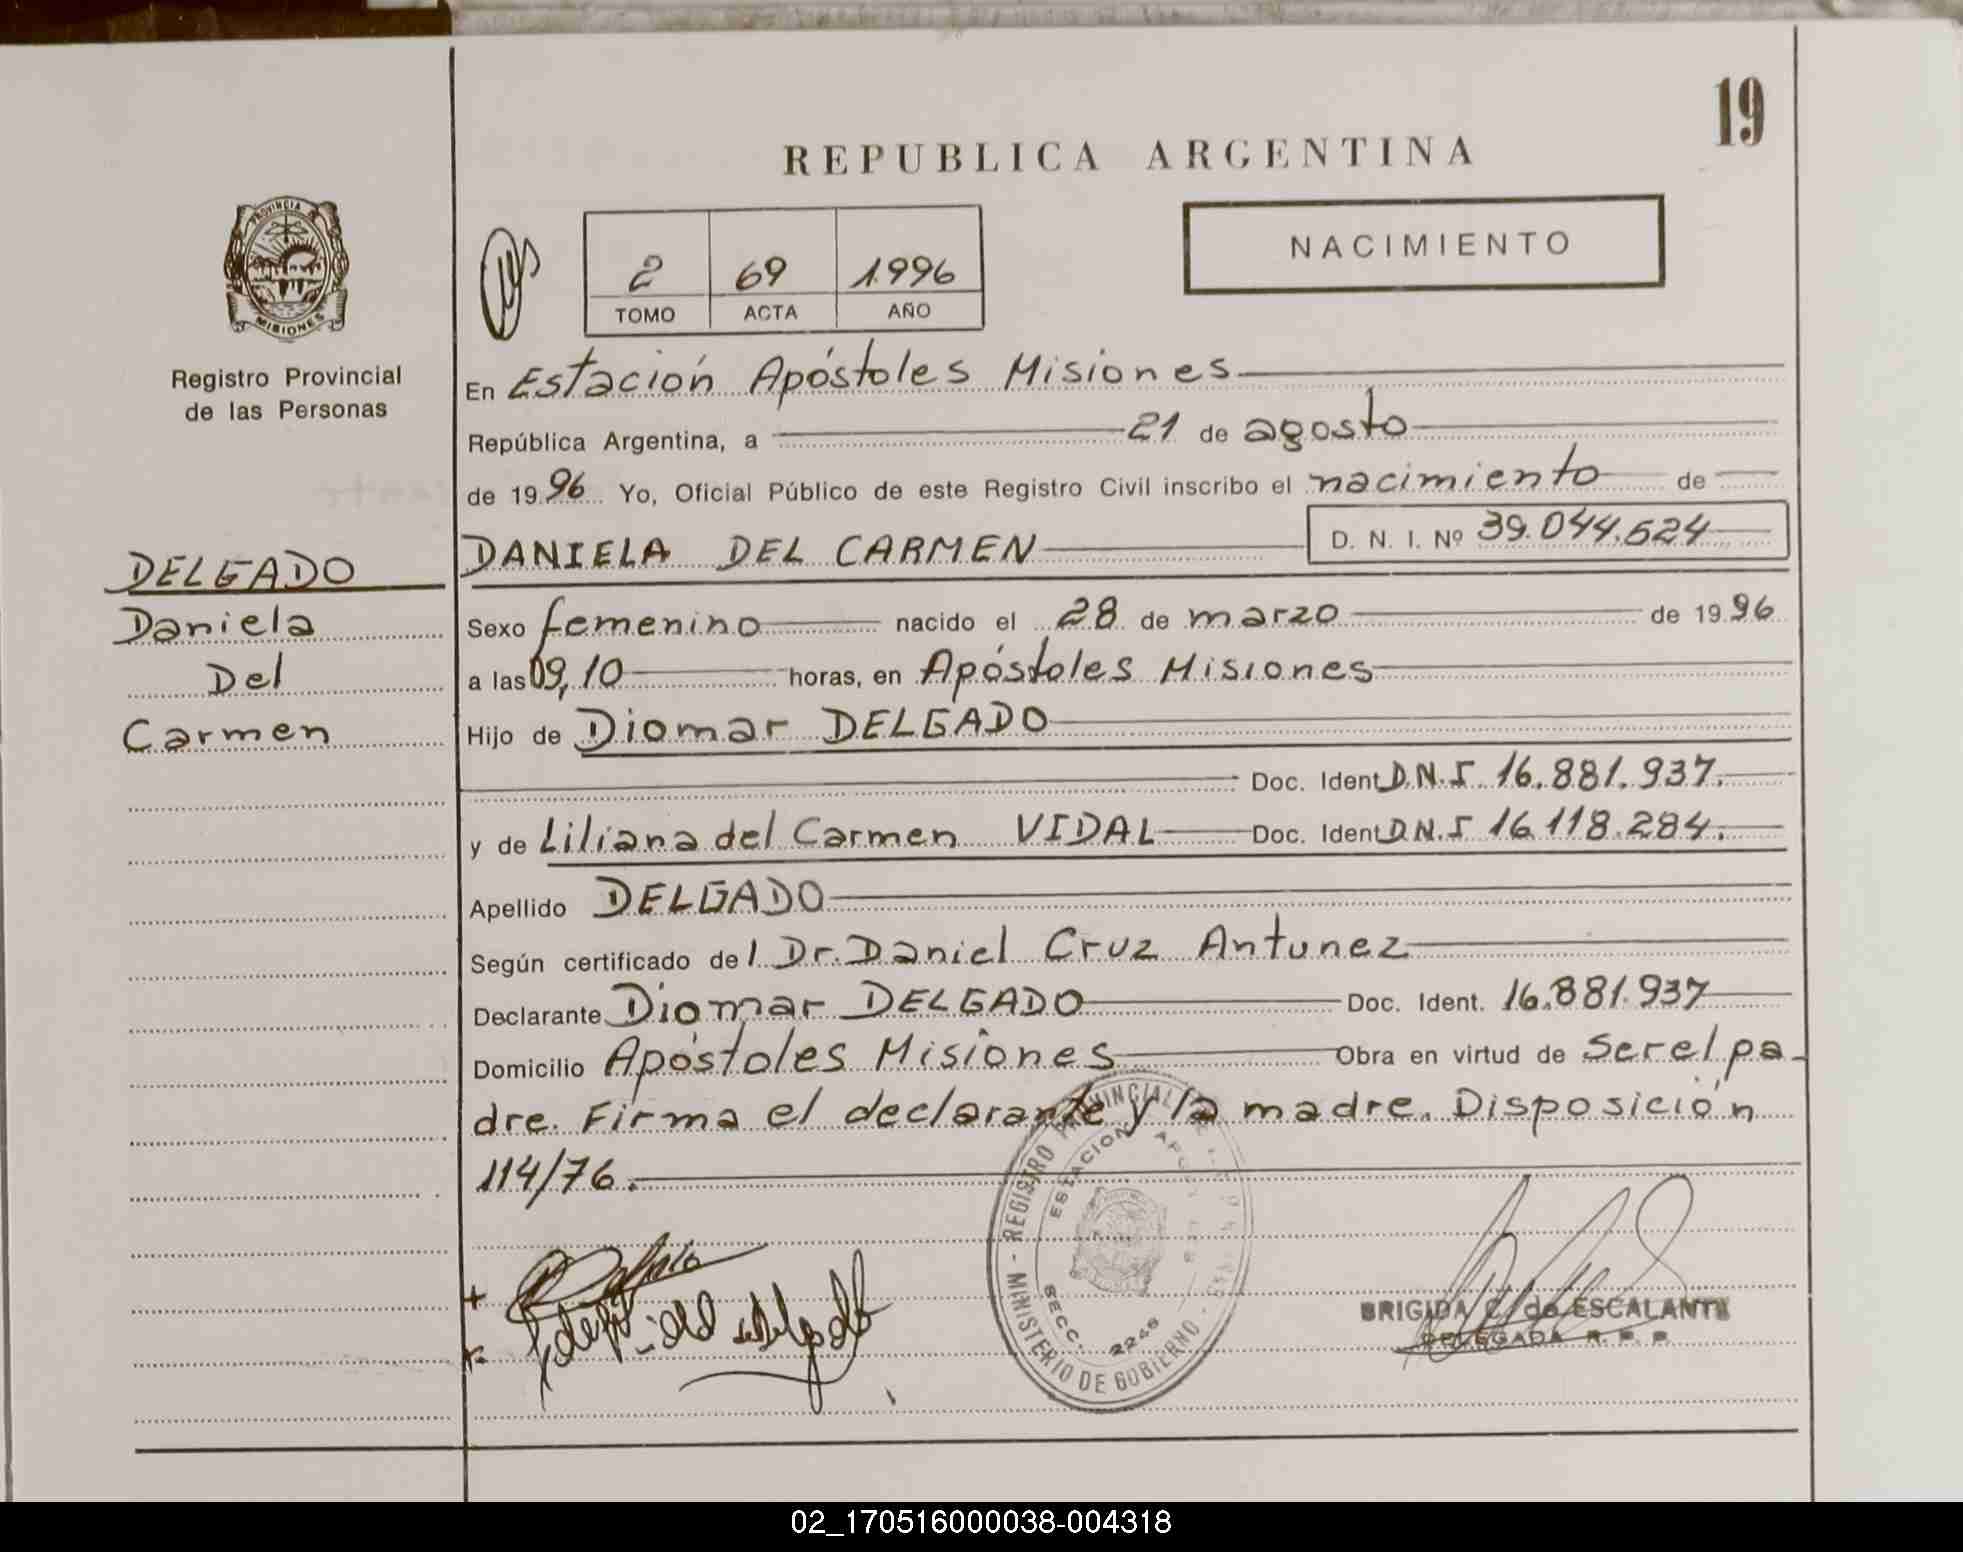 19
REPUBLICA ARGENTINA
PROVINCIA DE
MISIONES
Registro Provincial
de las Personas
NACIMIENTO
2 69 1.996
TOMO ACTA AÑO
En Estación Apóstoles Misiones
República Argentina, a 21 de agosto
de 19 96 Yo, Oficial Público de este Registro Civil inscribo el nacimiento de
DANIELA DEL CARMEN D. N. I. Nº 39.044.624
DELGADO
Daniela
Del
Carmen
Sexo femenino nacido el 28 de marzo de 19 96
a las 09,10 horas, en Apóstoles Misiones
Hijo de Diomar DELGADO
Doc. Ident D.N.I 16.881.937.
y de Liliana del Carmen VIDAL Doc. Ident D.N.I 16.118.284.
Apellido DELGADO
Según certificado del Dr. Daniel Cruz Antunez
Declarante Diomar DELGADO Doc. Ident. 16.881.937
Domicilio Apóstoles Misiones Obra en virtud de Ser el pa-
dre. Firma el declarante y la madre. Disposición
114/76.
MINISTERIO DE GOBIERNO - REGISTRO PROVINCIAL DE LAS PERSONAS
ESTACION APOSTOLES
SECC. 2245
BRIGIDA C. de ESCALANTE
DELEGADA R. P. P.
02_170516000038-004318